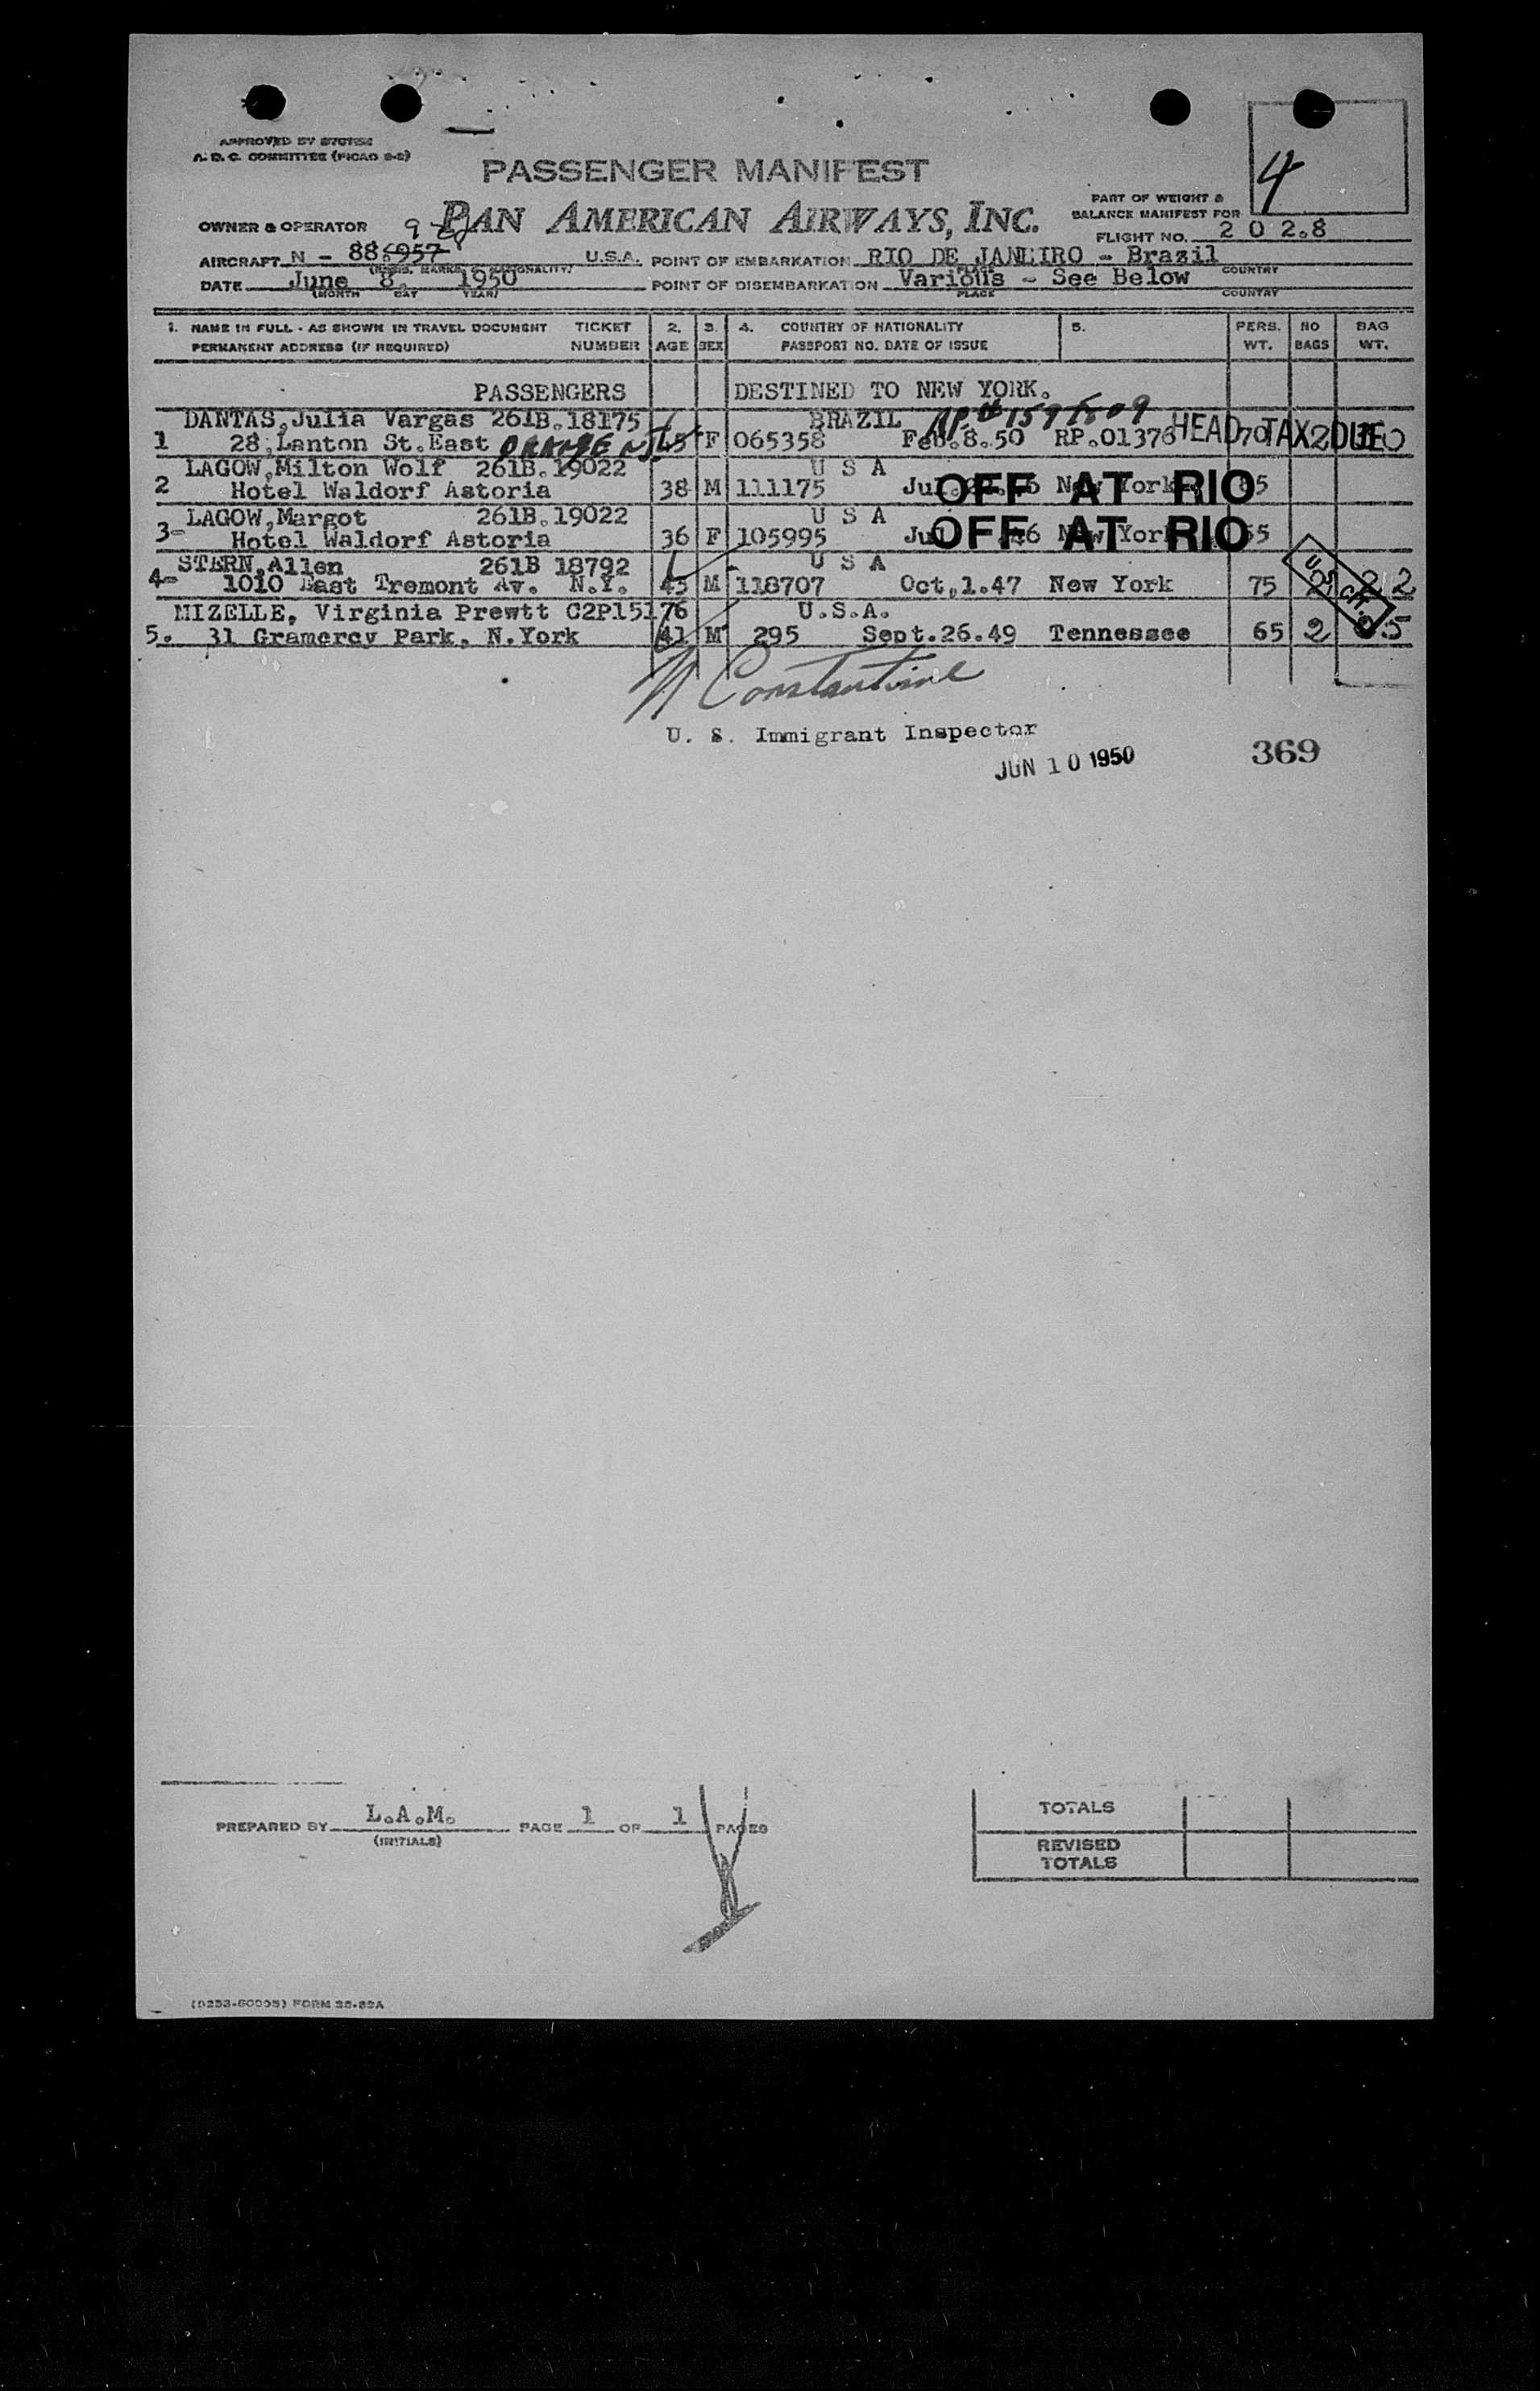 APPROVED BY
A. D. C. COMMITTEE (PICAO 2-2)
4
PASSENGER MANIFEST
PART OF WEIGHT &
BALANCE MANIFEST FOR
OWNER & OPERATOR PAN AMERICAN AIRWAYS, INC.
FLIGHT NO. 2 0 2.8
AIRCRAFT N - 88 957 U.S.A. POINT OF EMBARKATION RIO DE JANEIRO - Brazil
PLACE COUNTRY
DATE June 8. 1950 POINT OF DISEMBARKATION Various - See Below
(MONTH DAY YEAR) PLACE COUNTRY
1. NAME IN FULL - AS SHOWN IN TRAVEL DOCUMENT TICKET 2. 3. 4. COUNTRY OF NATIONALITY 5. PERS. NO BAG
PERMANENT ADDRESS (IF REQUIRED) NUMBER AGE SEX PASSPORT NO. DATE OF ISSUE WT. BAGS WT.
PASSENGERS DESTINED TO NEW YORK.
DANTAS,Julia Vargas 261B.18175 BRAZIL
1 28,Lanton St.East ORANGE NJ 45 F 065358 Feb.8.50 RP.01376 HEAD TAX DUE 70 2
LAGOW,Milton Wolf 261B.19022 U S A
2 Hotel Waldorf Astoria 38 M 111175 New York 85 OFF AT RIO
LAGOW,Margot 261B.19022 U S A
3- Hotel Waldorf Astoria 36 F 105995 New York 55 OFF AT RIO
STERN,Allen 261B 18792 U S A
4- 1010 East Tremont Av. N.Y. 45 M 118707 Oct,1.47 New York 75 2 22
MIZELLE, Virginia Prewtt C2P15176 U.S.A.
5. 31 Gramercy Park, N.York 41 M 295 Sept.26.49 Tennessee 65 2
N Constantine
U. S. Immigrant Inspector
JUN 10 1950
369
PREPARED BY L.A.M. PAGE 1 OF 1 PAGES
(INITIALS)
TOTALS
REVISED
TOTALS